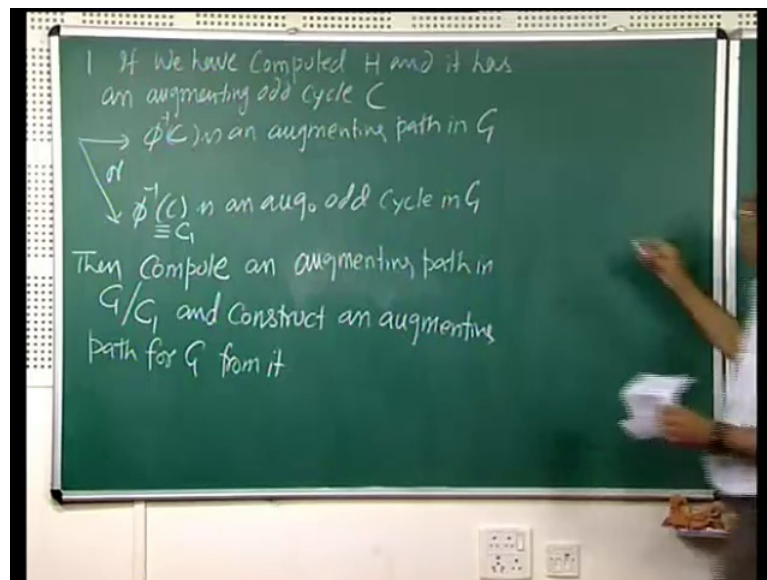 1 If we have computed H and it has
an augmenting odd cycle C
→ φ⁻¹(C) is an augmenting path in G
or
φ⁻¹(C) is an aug. odd cycle in G
≡ C₁
Then compute an augmenting path in
G/C₁ and construct an augmenting
path for G from it